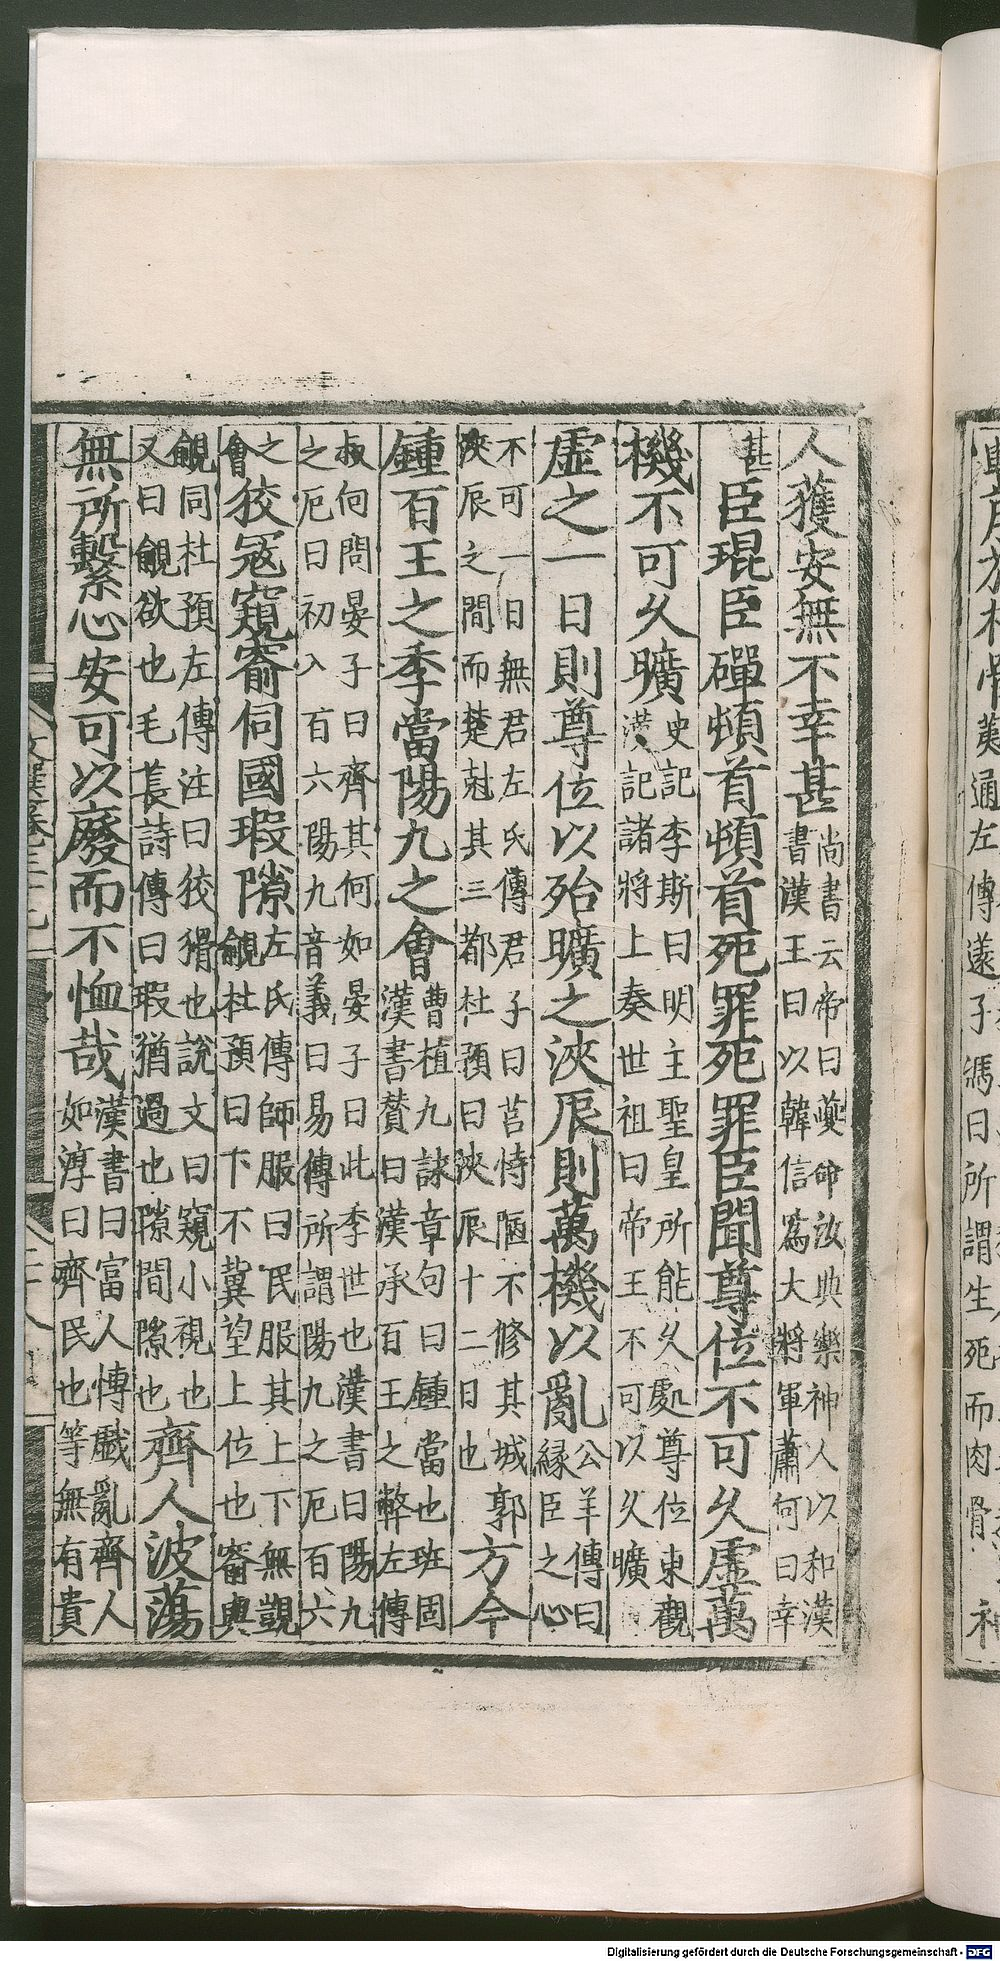 通左傳薳子馮曰所謂生死而肉骨
人獲安無不幸甚
尚書云帝曰夔命汝典樂神人以和漢
書漢王曰以韓信爲大將軍蕭何曰幸
甚臣琨臣磾頓首頓首死罪死罪臣聞尊位不可久虛萬
機不可久曠
史記李斯曰明主聖皇所能久處尊位東觀
漢記諸將上奏世祖曰帝王不可以久曠
虛之一日則尊位以殆曠之浹辰則萬機以亂
公羊傳曰
緣臣之心
不可一日無君左氏傳君子曰莒恃陋不修其城郭
浹辰之間而楚尅其三都杜預曰浹辰十二日也
方今
鍾百王之季當陽九之會
曹植九詠章句曰鍾當也班固
漢書贊曰漢承百王之弊左傳
叔向問晏子曰齊其何如晏子曰此季世也漢書曰陽九
之厄曰初入百六陽九音義曰易傳所謂陽九之厄百六
之
會
狡寇窺窬伺國瑕隙
左氏傳師服曰民服其上下無覬
覦杜預曰下不冀望上位也窬與
覦同杜預左傳注曰狡猾也說文曰窺小視也
又曰覦欲也毛萇詩傳曰瑕猶過也隙間隙也
齊人波蕩
無所繫心安可以廢而不恤哉
漢書曰富人傅戲亂齊人
如淳曰齊民也等無有貴
Digitalisierung gefördert durch die Deutsche Forschungsgemeinschaft - DFG